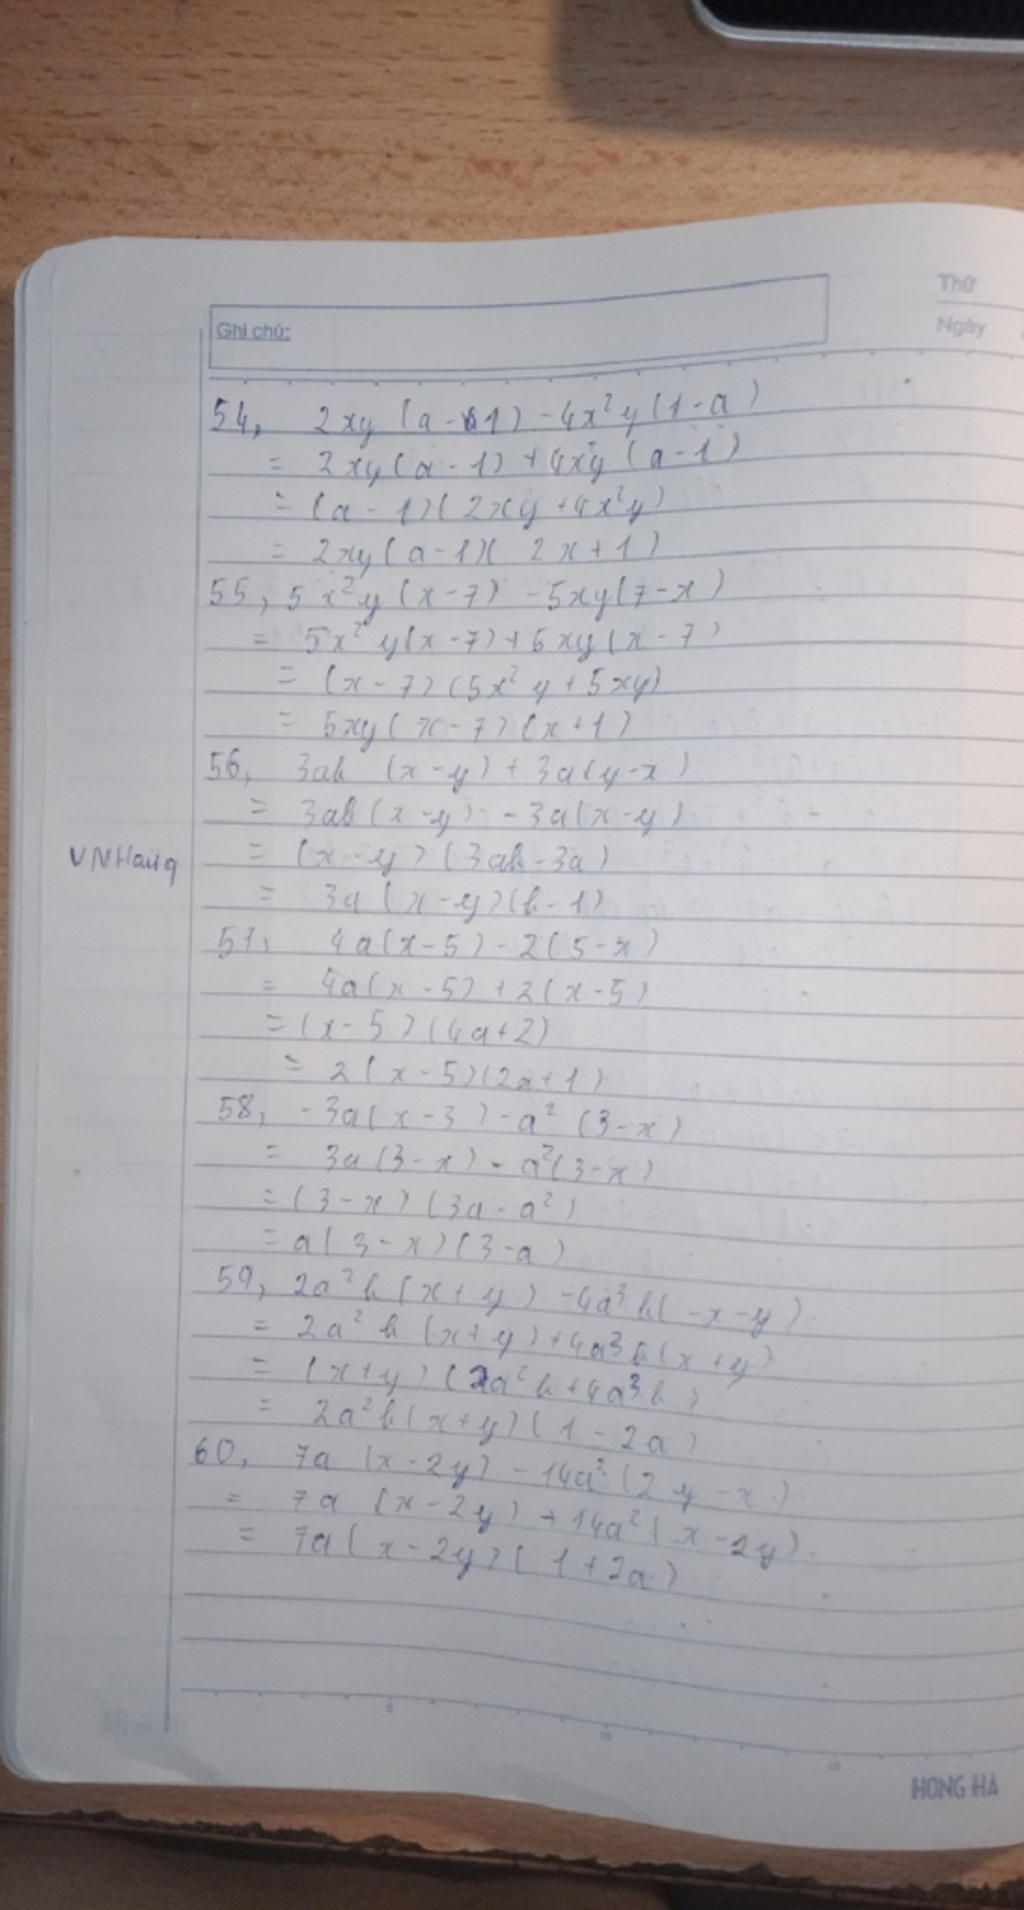 Thứ
Ghi chú:
Ngày
54, 2xy (a-1) - 4x²y(1-a)
= 2xy(a-1) + 4x²y (a-1)
= (a-1)(2xy+4x²y)
= 2xy(a-1)(2x+1)
55, 5x²y(x-7) - 5xy(7-x)
= 5x²y(x-7)+5xy(x-7)
= (x-7)(5x²y+5xy)
= 5xy(x-7)(x+1)
56, 3ab (x-y)+3a(y-x)
= 3ab(x-y) - 3a(x-y)
VNHang
= (x-y)(3ab-3a)
= 3a(x-y)(b-1)
57, 4a(x-5) - 2(5-x)
= 4a(x-5)+2(x-5)
= (x-5)(4a+2)
= 2(x-5)(2a+1)
58, -3a(x-3) - a² (3-x)
= 3a(3-x) - a²(3-x)
= (3-x)(3a-a²)
= a(3-x)(3-a)
59, 2a²b(x+y) - 4a³b(-x-y)
= 2a²b(x+y)+4a³b(x+y)
= (x+y)(2a²b+4a³b)
= 2a²b(x+y)(1-2a)
60, 7a (x-2y) - 14a²(2y-x)
= 7a (x-2y) + 14a²(x-2y)
= 7a(x-2y)(1+2a)
5
10
15
HONG HA